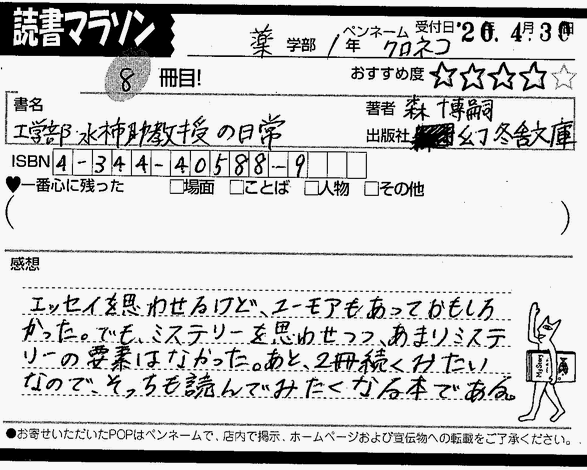 読書マラソン
薬 学部 1年 ペンネーム クロネコ 受付日 '20.4.30
8 冊目! おすすめ度 ★★★★☆
書名 著者 森 博嗣
工学部・水柿助教授の日常 出版社 幻冬舎文庫
ISBN 4-344-40588-9
♥一番心に残った □場面 □ことば □人物 □その他
( )
感想
エッセイを思わせるけど、ユーモアもあっておもしろ
かった。でも、ミステリーを思わせつつ、あまりミステ
リーの要素はなかった。あと、2冊続くみたい
なので、そっちも読んでみたくなる本である。
●お寄せいただいたPOPはペンネームで、店内で掲示、ホームページおよび宣伝物への転載をご了承ください。